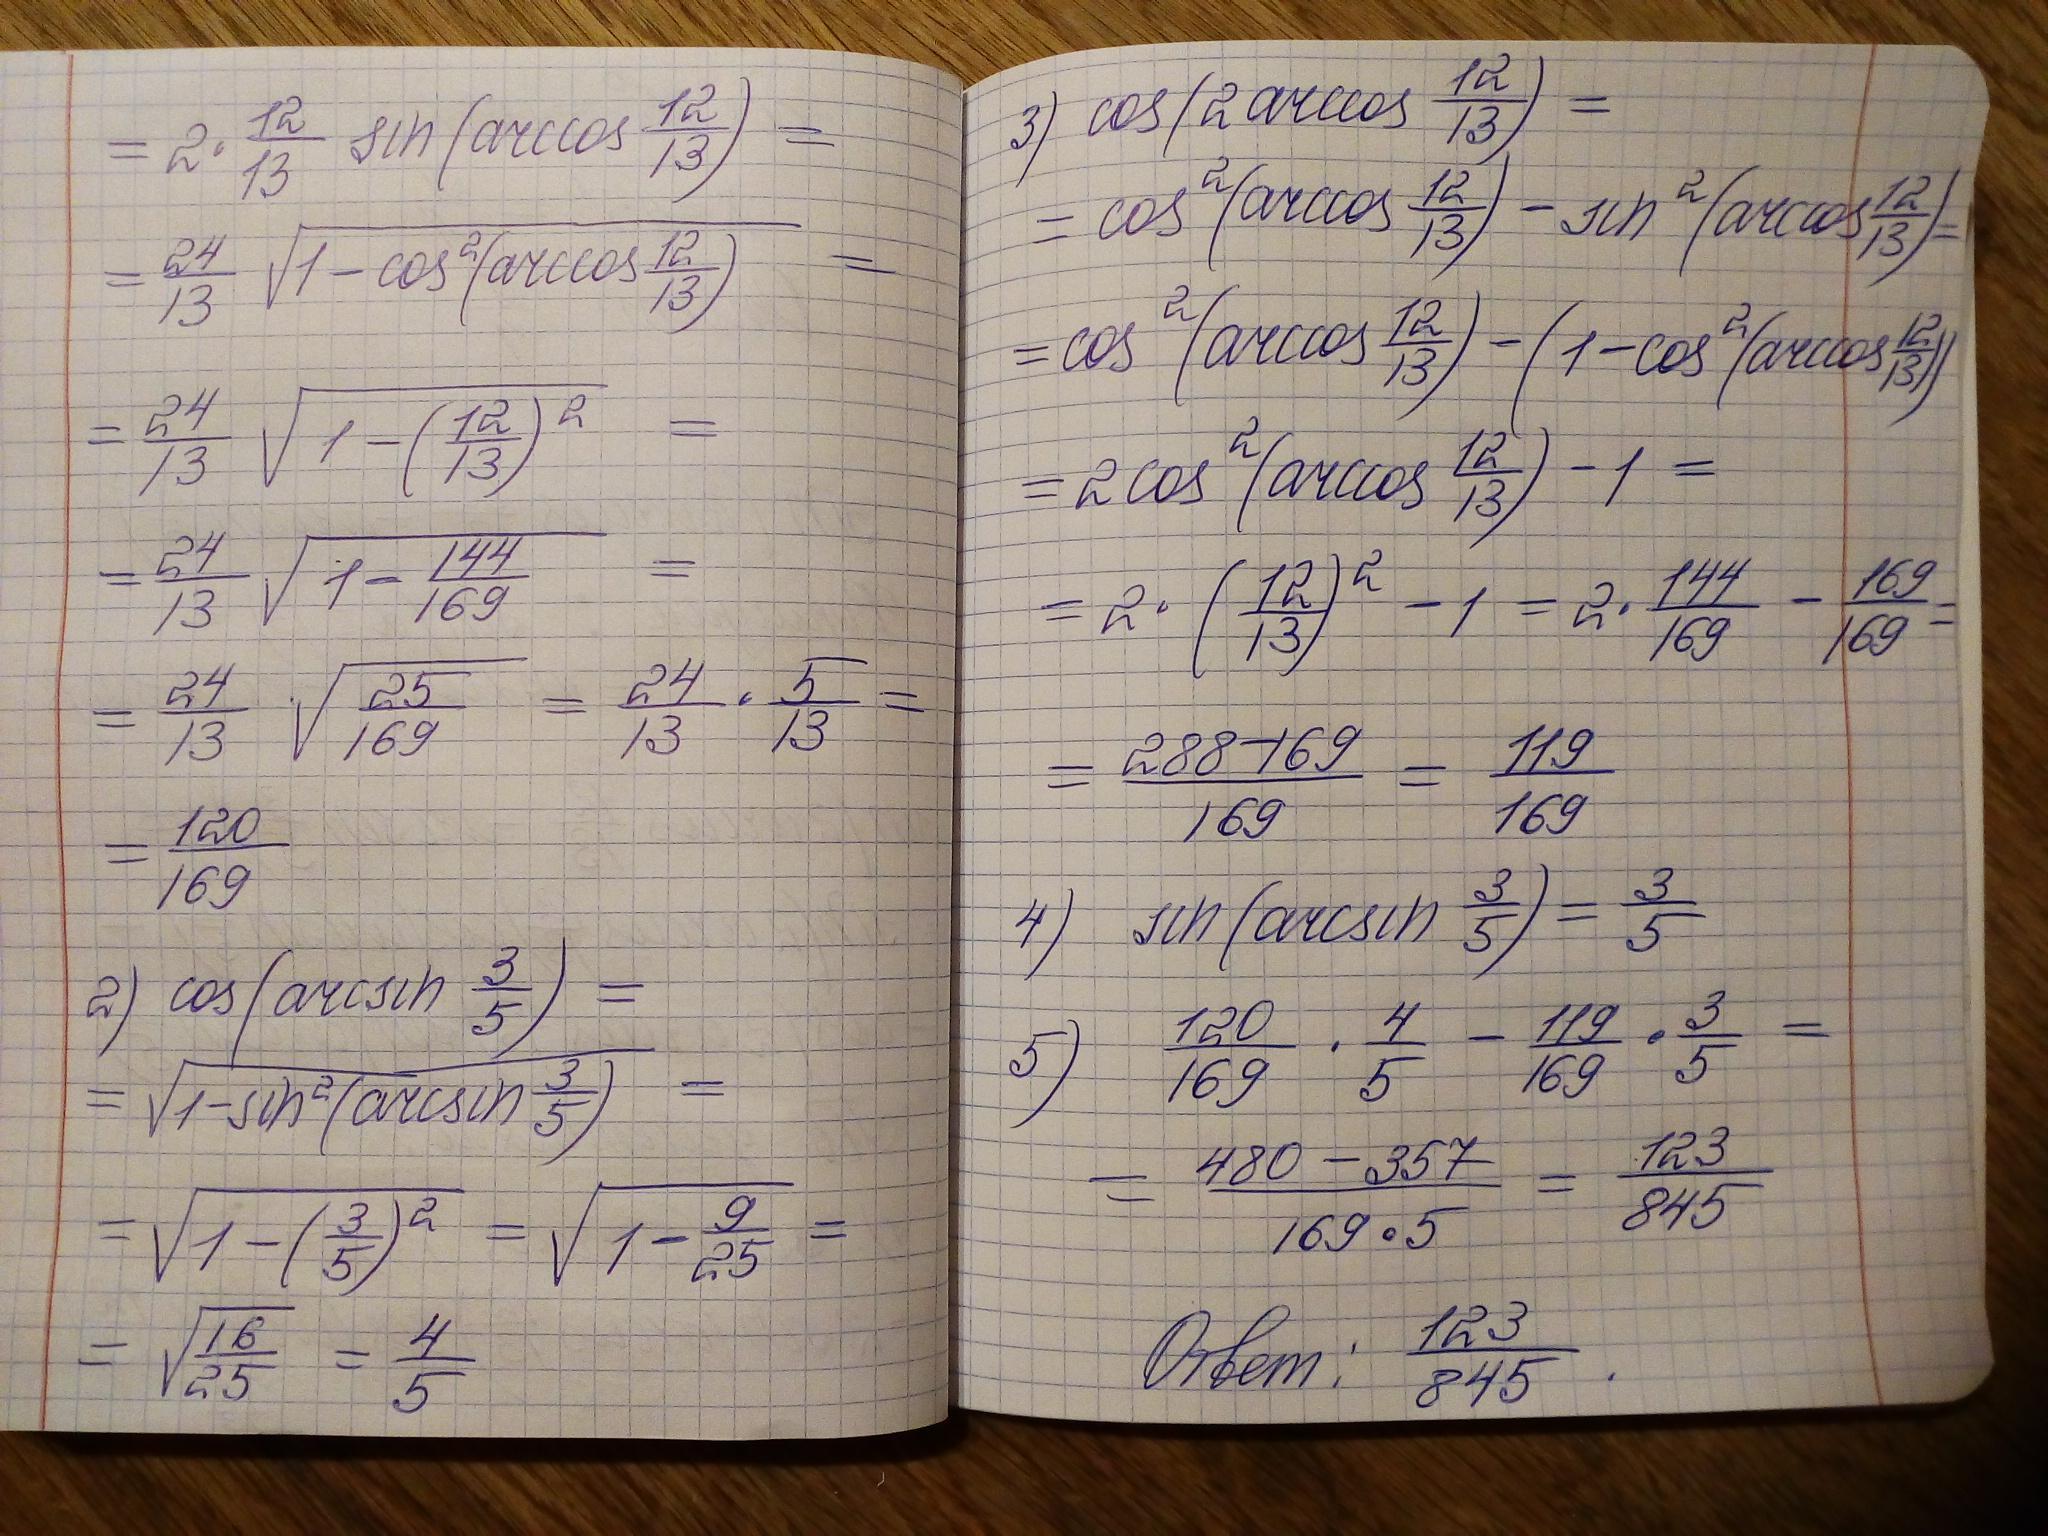 = 2 · 12/13 sin(arccos 12/13) =
= 24/13 √(1 - cos²(arccos 12/13)) =
= 24/13 √(1 - (12/13)²) =
= 24/13 √(1 - 144/169) =
= 24/13 · √(25/169) = 24/13 · 5/13 =
= 120/169
2) cos(arcsin 3/5) =
= √(1 - sin²(arcsin 3/5)) =
= √(1 - (3/5)²) = √(1 - 9/25) =
= √(16/25) = 4/5
3) cos(2 arccos 12/13) =
= cos²(arccos 12/13) - sin²(arccos 12/13) =
= cos²(arccos 12/13) - (1 - cos²(arccos 12/13))
= 2cos²(arccos 12/13) - 1 =
= 2 · (12/13)² - 1 = 2 · 144/169 - 169/169 =
= (288 - 169)/169 = 119/169
4) sin(arcsin 3/5) = 3/5
5) 120/169 · 4/5 - 119/169 · 3/5 =
= (480 - 357)/(169 · 5) = 123/845
Ответ: 123/845.